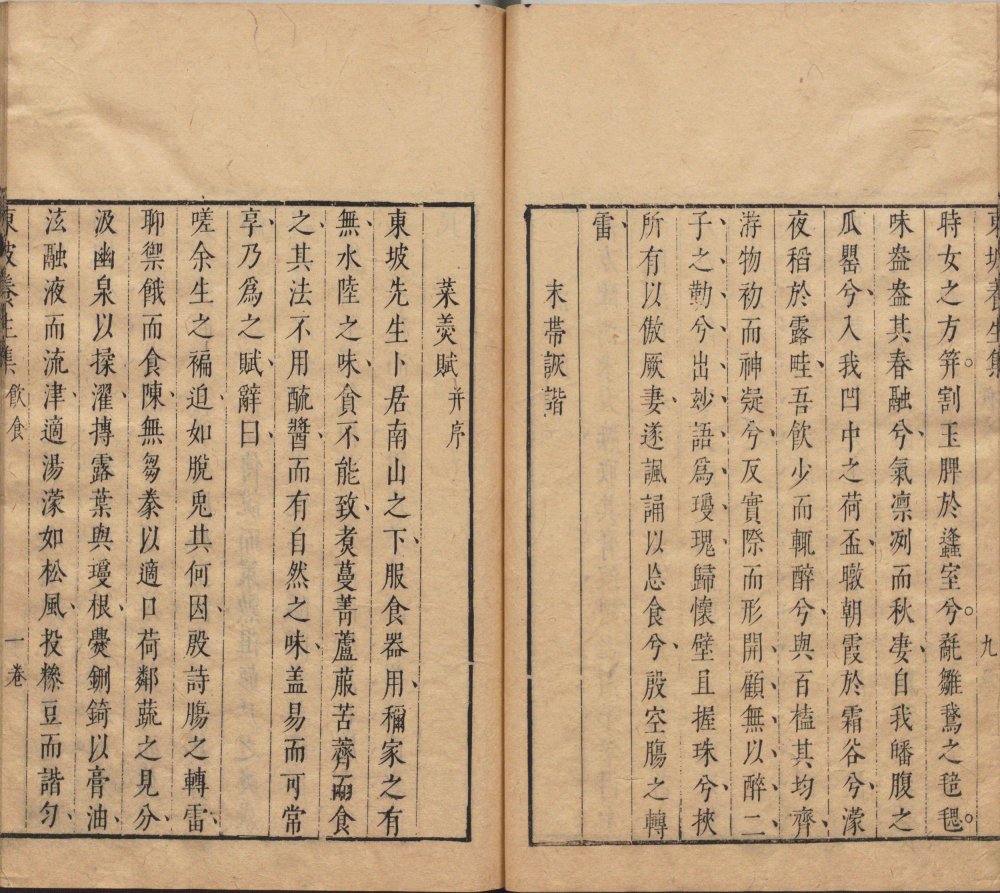 東坡養生集
九
時女之方笄割玉脾於蠭室兮氄雛鵞之毰毸
味盎盎其春融兮氣凛冽而秋凄自我皤腹之
瓜罌兮入我凹中之荷盃暾朝霞於霜谷兮濛
夜稻於露畦吾飲少而輒醉兮與百榼其均齊
游物初而神凝兮反實際而形開顧無以醉二
子之勤兮出妙語爲瓊瑰歸懷壁且握珠兮挾
所有以傲厥妻遂諷誦以忘食兮殷空腸之轉
雷
末帶詼諧
菜羮賦 并序
東坡先生卜居南山之下服食器用稱家之有
無水陸之味貧不能致煑蔓菁蘆菔苦薺而食
之其法不用醯醬而有自然之味盖易而可常
享乃爲之賦辭曰
嗟余生之褊迫如脫兎其何因殷詩腸之轉雷
聊禦餓而食陳無芻豢以適口荷鄰蔬之見分
汲幽泉以揉濯摶露葉與瓊根爨鉶錡以膏油
泫融液而流津適湯濛如松風投糝豆而諧勻
東坡養生集 飲食 一卷